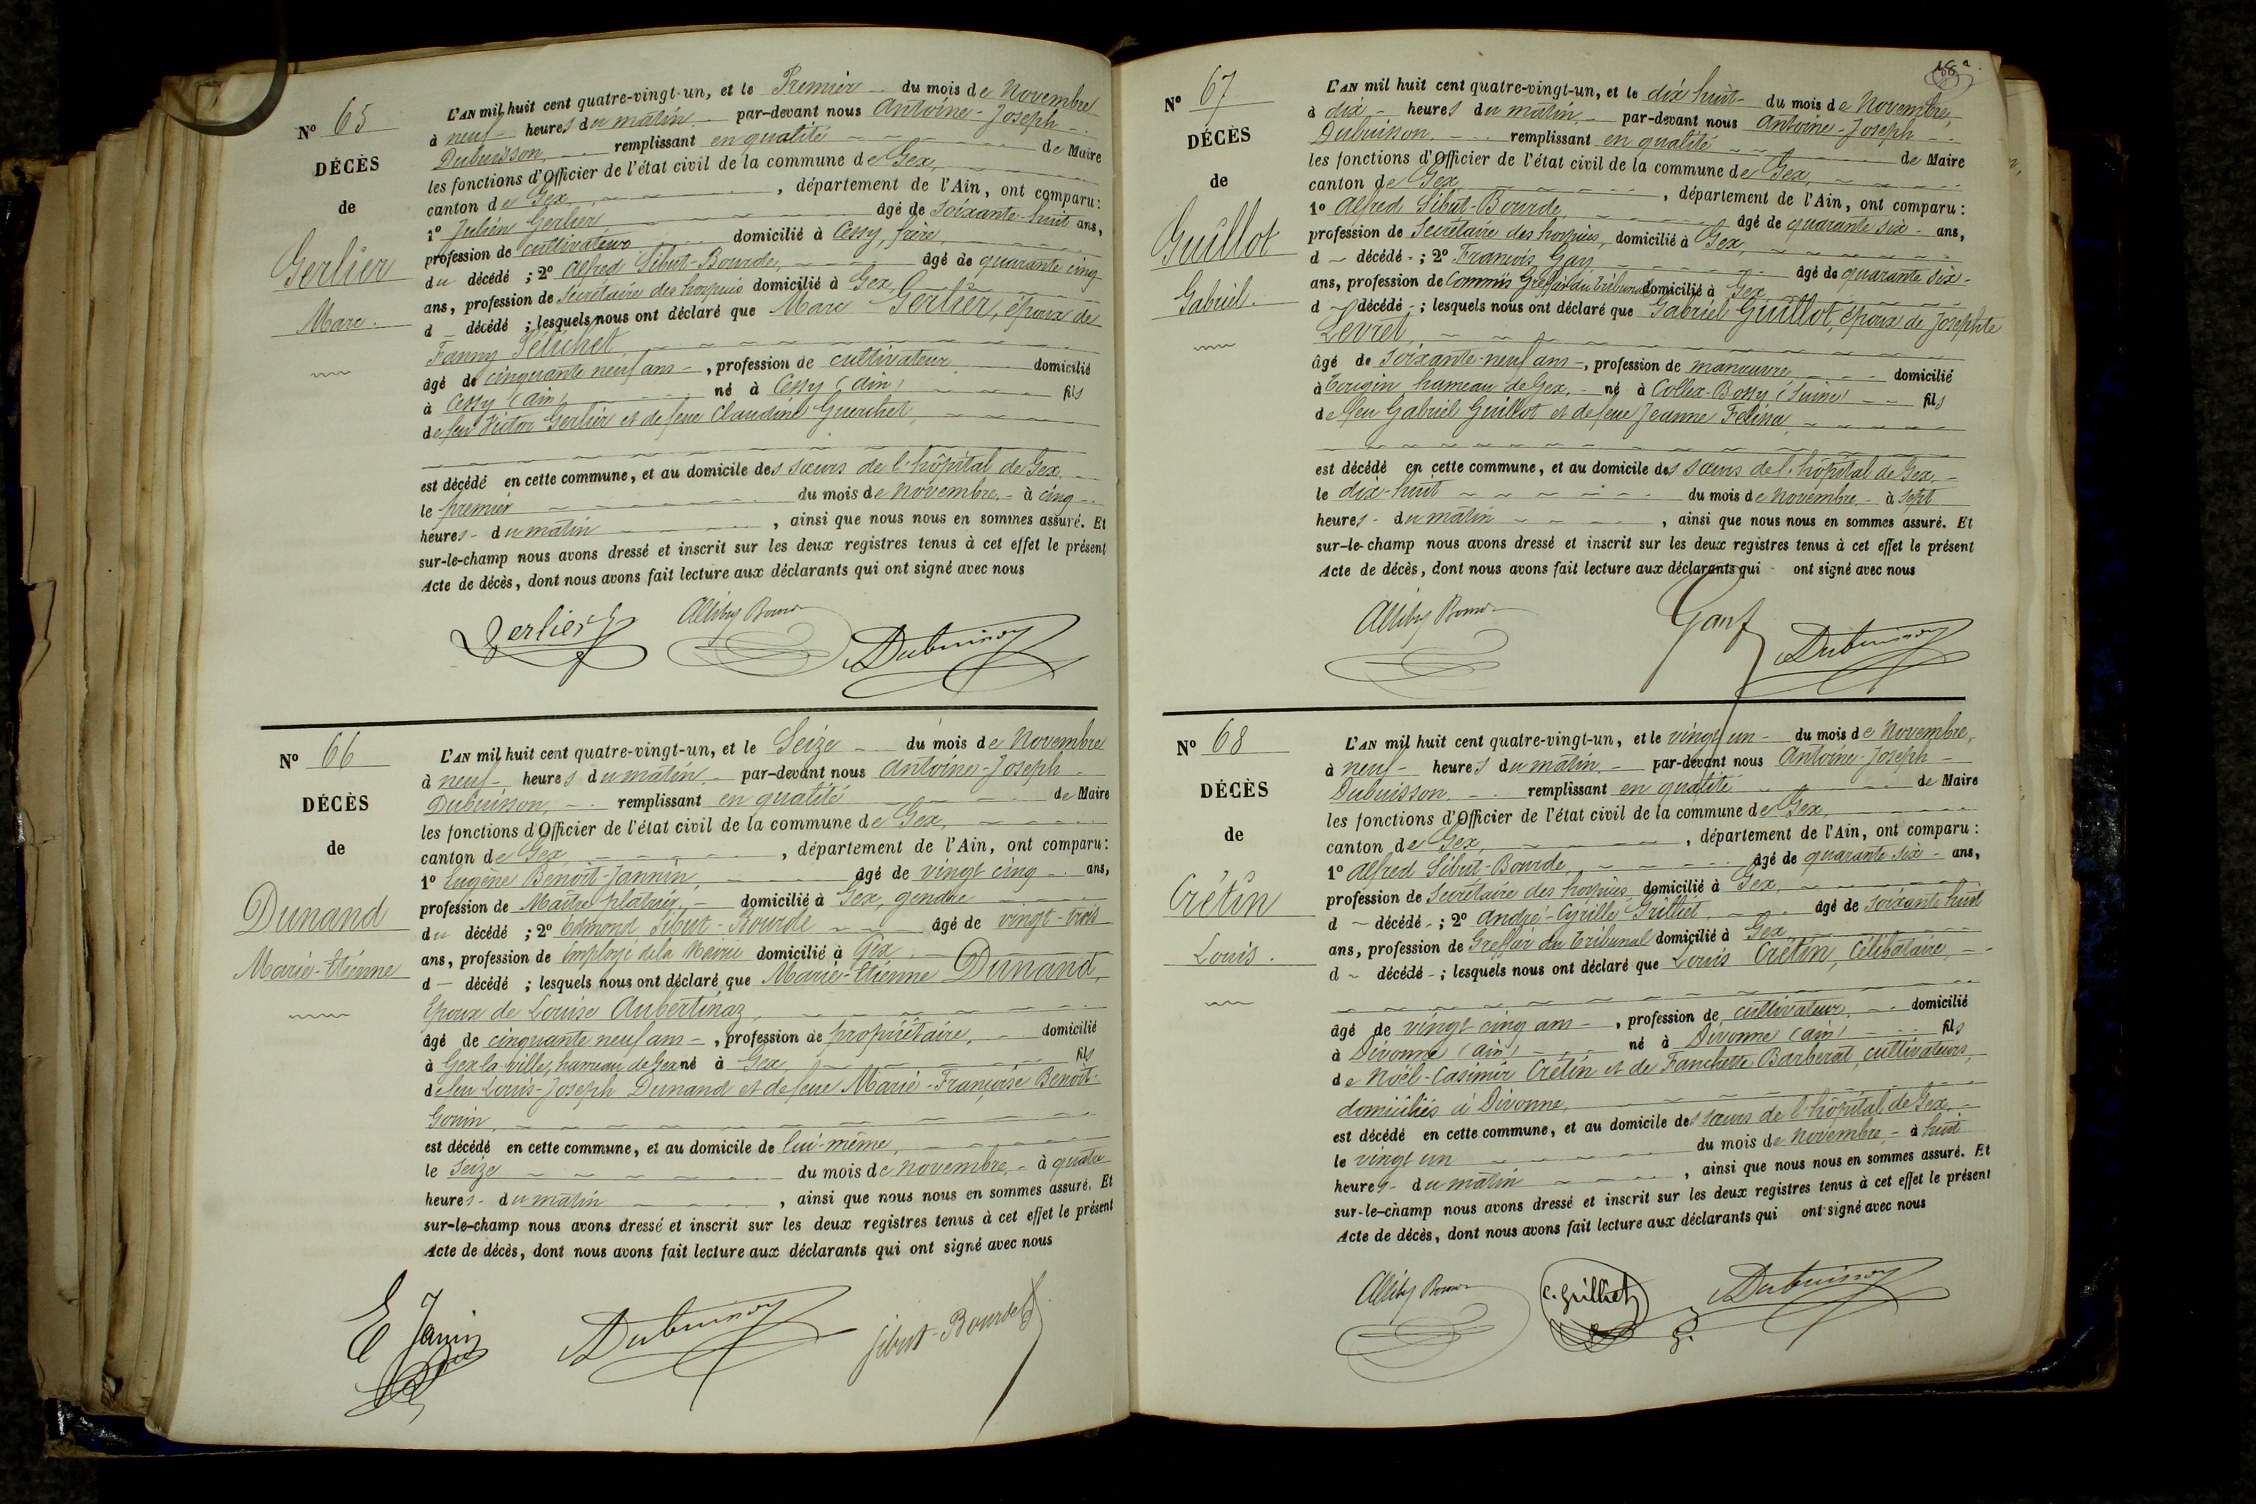 Nº 65
DÉCÈS
de
Gerlier
Marc.
L'AN mil huit cent quatre-vingt-un, et le Premier du mois de Novembre
à neuf heures du matin par-devant nous Antoine-Joseph
Dubuisson, remplissant en qualité de Maire
les fonctions d'Officier de l'état civil de la commune de Gex,
canton de Gex, département de l'Ain, ont comparu:
1º Julien Gerlier âgé de soixante-huit ans,
profession de cultivateur domicilié à Cessy, frère,
du décédé; 2º Alfred Sibut-Bourde, âgé de quarante cinq
ans, profession de Secrétaire des hospices domicilié à Gex,
d décédé; lesquels nous ont déclaré que Marc Gerlier, époux de
Fanny
âgé de cinquante neuf ans, profession de cultivateur domicilié
à Cessy (Ain) né à Cessy (Ain) fils
de feu Victor Gerlier et de feue Claudine Guerchet,
est décédé en cette commune, et au domicile des sœurs de l'hôpital de Gex,
le premier du mois de Novembre, à cinq
heures du matin, ainsi que nous nous en sommes assuré. Et
sur-le-champ nous avons dressé et inscrit sur les deux registres tenus à cet effet le présent
Acte de décès, dont nous avons fait lecture aux déclarants qui ont signé avec nous
Gerlier Dubuisson
Nº 66
DÉCÈS
de
Dunand
Marie-Etienne
L'AN mil huit cent quatre-vingt-un, et le Seize du mois de Novembre
à neuf heures du matin par-devant nous Antoine-Joseph
Dubuisson, remplissant en qualité de Maire
les fonctions d'Officier de l'état civil de la commune de Gex,
canton de Gex, département de l'Ain, ont comparu:
1º Eugène Benoit-Jannin, âgé de vingt cinq ans,
profession de Maître plâtrier, domicilié à Gex, gendre
du décédé; 2º Edmond Sibut-Bourde âgé de vingt-trois
ans, profession de Employé de la Mairie domicilié à Gex
d décédé; lesquels nous ont déclaré que Marie-Etienne Dunand,
Epoux de Louise Aubertinaz,
âgé de cinquante neuf ans, profession de propriétaire, domicilié
à Gex-la-ville, hameau de Gex né à Gex, fils
de feu Louis-Joseph Dunand et de feue Marie-Françoise Benoit-
Gonin,
est décédé en cette commune, et au domicile de lui-même,
le seize du mois de Novembre, à quatre
heures du matin, ainsi que nous nous en sommes assuré. Et
sur-le-champ nous avons dressé et inscrit sur les deux registres tenus à cet effet le présent
Acte de décès, dont nous avons fait lecture aux déclarants qui ont signé avec nous
E Janin Dubuisson Sibut-Bourde
Nº 67
DÉCÈS
de
Guillot
Gabriel.
L'AN mil huit cent quatre-vingt-un, et le dix huit du mois de Novembre,
à dix heures du matin, par-devant nous Antoine-Joseph
Dubuisson, remplissant en qualité de Maire
les fonctions d'Officier de l'état civil de la commune de Gex,
canton de Gex, département de l'Ain, ont comparu:
1º Alfred Sibut-Bourde, âgé de quarante six ans,
profession de Secrétaire des hospices, domicilié à Gex,
d décédé; 2º François Gay âgé de quarante six
ans, profession de Commis Greffier du Tribunal domicilié à Gex
d décédé; lesquels nous ont déclaré que Gabriel Guillot, époux de Josephte
Levret,
âgé de soixante-neuf ans, profession de manœuvre, domicilié
à Tougin hameau de Gex, né à Collex-Bossy (Suisse) fils
de feu Gabriel Guillot et de feue Jeanne Felina,
est décédé en cette commune, et au domicile des sœurs de l'hôpital de Gex,
le dix-huit du mois de Novembre, à sept
heures du matin, ainsi que nous nous en sommes assuré. Et
sur-le-champ nous avons dressé et inscrit sur les deux registres tenus à cet effet le présent
Acte de décès, dont nous avons fait lecture aux déclarants qui ont signé avec nous
Gay Dubuisson
Nº 68
DÉCÈS
de
Crétin
Louis.
L'AN mil huit cent quatre-vingt-un, et le vingt un du mois de Novembre,
à neuf heures du matin, par-devant nous Antoine-Joseph
Dubuisson, remplissant en qualité de Maire
les fonctions d'Officier de l'état civil de la commune de Gex,
canton de Gex, département de l'Ain, ont comparu:
1º Alfred Sibut-Bourde, âgé de quarante six ans,
profession de Secrétaire des hospices domicilié à Gex,
d décédé; 2º André-Cyrille Grilliet, âgé de soixante huit
ans, profession de Greffier du Tribunal domicilié à Gex
d décédé; lesquels nous ont déclaré que Louis Crétin, Célibataire,
âgé de vingt cinq ans, profession de cultivateur, domicilié
à Divonne (Ain) né à Divonne (Ain) fils
de Noël-Casimir Crétin et de Fanchette Barberat, cultivateurs,
domiciliés à Divonne,
est décédé en cette commune, et au domicile des sœurs de l'hôpital de Gex,
le vingt un du mois de Novembre, à huit
heures du matin, ainsi que nous nous en sommes assuré. Et
sur-le-champ nous avons dressé et inscrit sur les deux registres tenus à cet effet le présent
Acte de décès, dont nous avons fait lecture aux déclarants qui ont signé avec nous
C. Grilliet Dubuisson